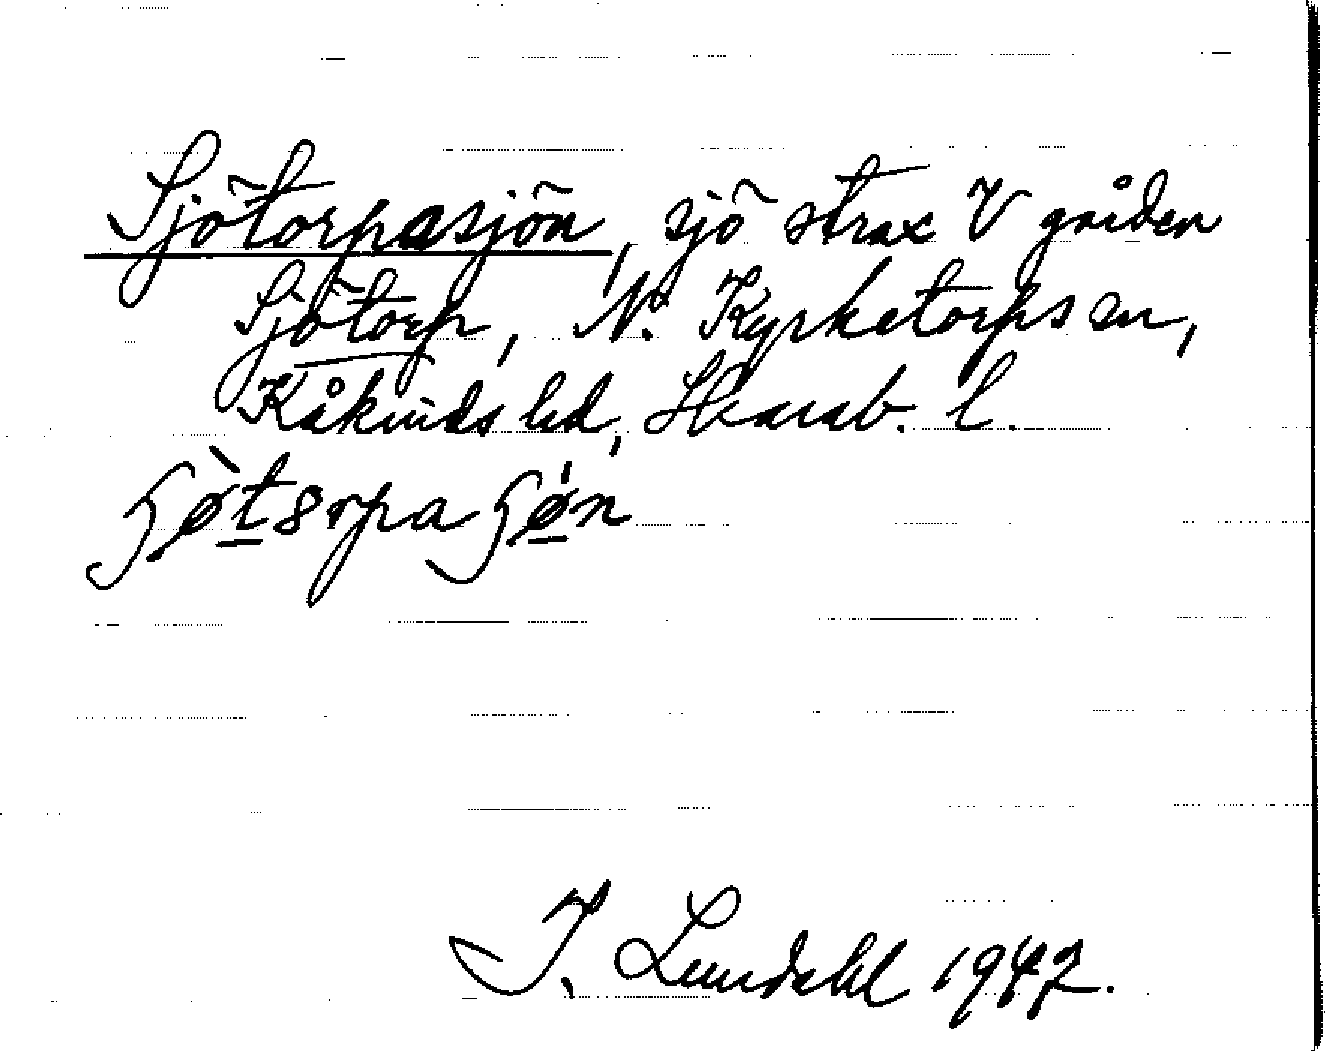 Sjötorpasjön, sjö strax V gården
Sjötorp, N. Kyrketorps sn,
Kåkinds hd, Skarab. l.
I. Lundahl 1947.